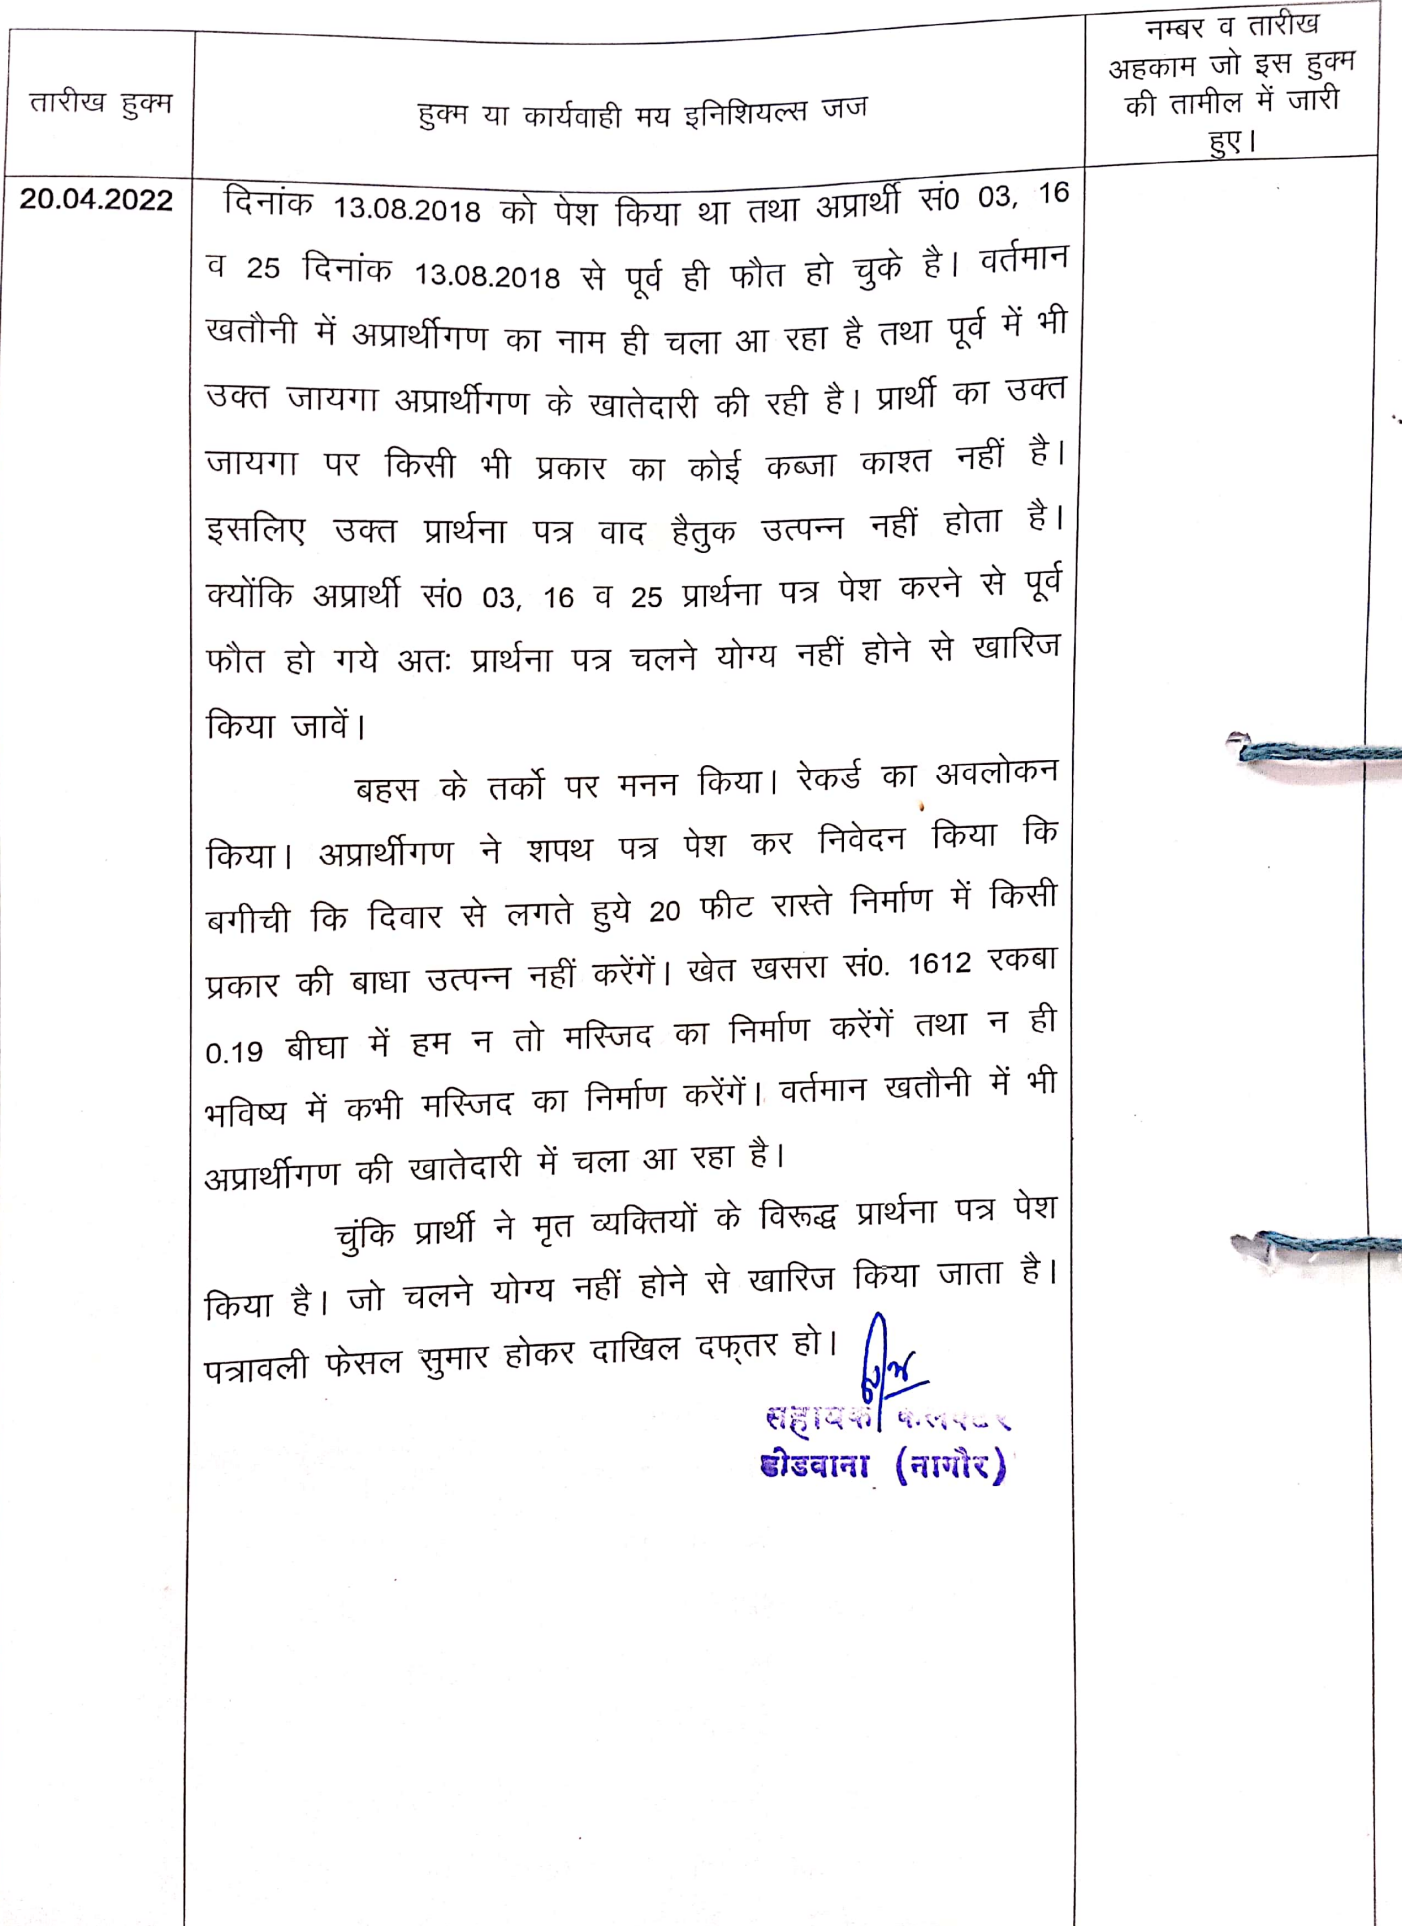 तारीख हुक्म
हुक्म या कार्यवाही मय इनिशियल्स जज
नम्बर व तारीख
अहकाम जो इस हुक्म
की तामील में जारी
हुए।
20.04.2022
दिनांक 13.08.2018 को पेश किया था तथा अप्रार्थी सं0 03, 16
व 25 दिनांक 13.08.2018 से पूर्व ही फौत हो चुके है। वर्तमान
खतौनी में अप्रार्थीगण का नाम ही चला आ रहा है तथा पूर्व में भी
उक्त जायगा अप्रार्थीगण के खातेदारी की रही है। प्रार्थी का उक्त
जायगा पर किसी भी प्रकार का कोई कब्जा काश्त नहीं है।
इसलिए उक्त प्रार्थना पत्र वाद हैतुक उत्पन्न नहीं होता है।
क्योंकि अप्रार्थी सं0 03, 16 व 25 प्रार्थना पत्र पेश करने से पूर्व
फौत हो गये अतः प्रार्थना पत्र चलने योग्य नहीं होने से खारिज
किया जावें।
बहस के तर्को पर मनन किया। रेकर्ड का अवलोकन
किया। अप्रार्थीगण ने शपथ पत्र पेश कर निवेदन किया कि
बगीची कि दिवार से लगते हुये 20 फीट रास्ते निर्माण में किसी
प्रकार की बाधा उत्पन्न नहीं करेंगें। खेत खसरा सं0. 1612 रकबा
0.19 बीघा में हम न तो मस्जिद का निर्माण करेंगें तथा न ही
भविष्य में कभी मस्जिद का निर्माण करेंगें। वर्तमान खतौनी में भी
अप्रार्थीगण की खातेदारी में चला आ रहा है।
चुंकि प्रार्थी ने मृत व्यक्तियों के विरूद्ध प्रार्थना पत्र पेश
किया है। जो चलने योग्य नहीं होने से खारिज किया जाता है।
पत्रावली फेसल सुमार होकर दाखिल दफ्तर हो।
सहायक कलक्टर
डीडवाना (नागौर)